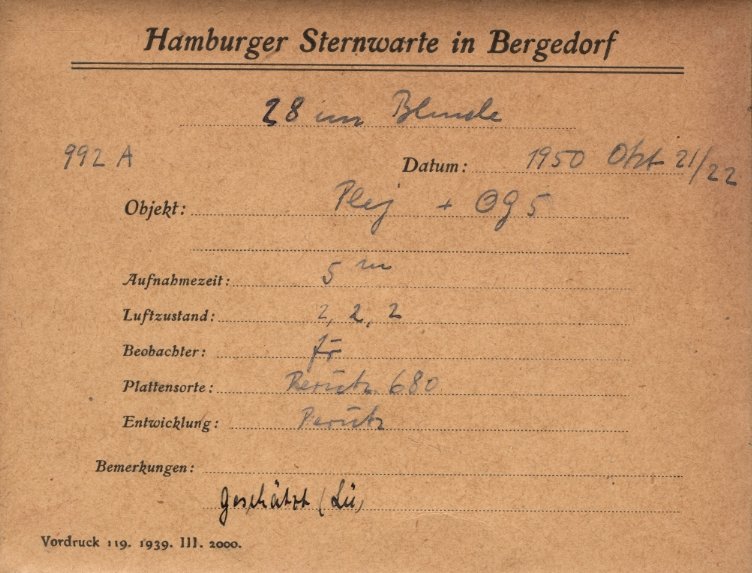 Hamburger Sternwarte in Bergedorf
28 cm Blende
992 A Datum: 1950 Okt 21/22
Objekt: Plej + OG 5
Aufnahmezeit: 5 m
Luftzustand: 2, 2, 2
Beobachter:
Plattensorte: Perutz 680
Entwicklung: Perutz
Bemerkungen:
geschätzt (Lü)
Vordruck 119. 1939. III. 2000.